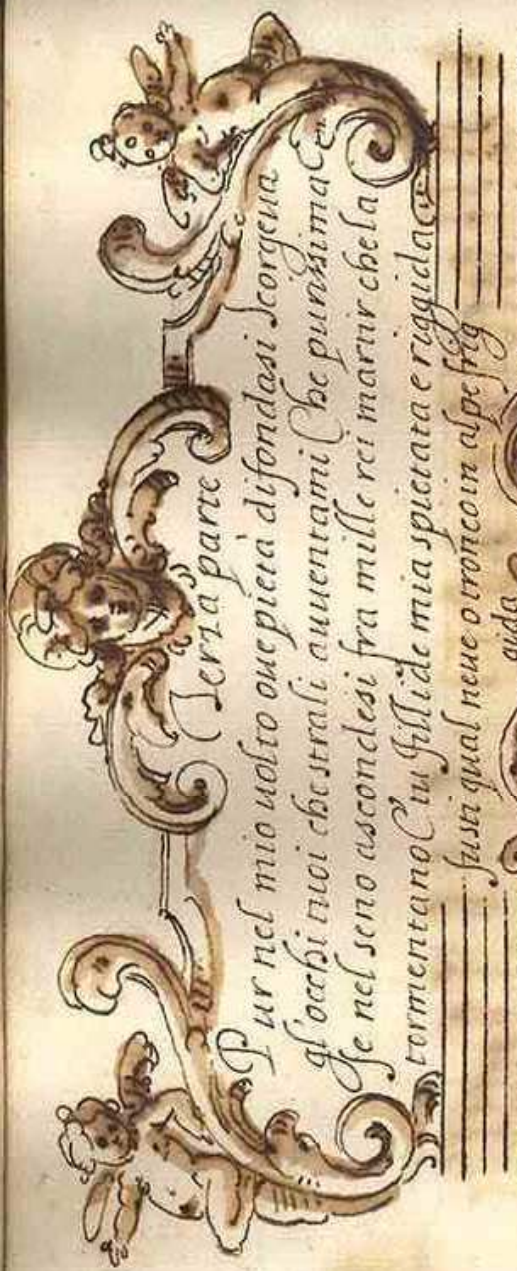 Terza parte
Pur nel mio uolto oue pietà difondasi Scorgeua
gl'occhi tuoi che strali auuentami Che purissima e
se nel seno ascondesi fra mille rei martir che la
tormentano E tu Fillide mia spietata e riggida E
fusti qual neue o tronco in alpe frig
gida